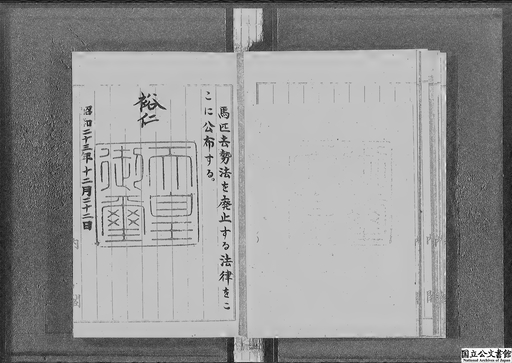 馬匹去勢法を廃止する法律をこ
こに公布する。
裕仁
天皇
御璽
昭和二十三年十二月二十二日
内
閣
国立公文書館
National Archives of Japan